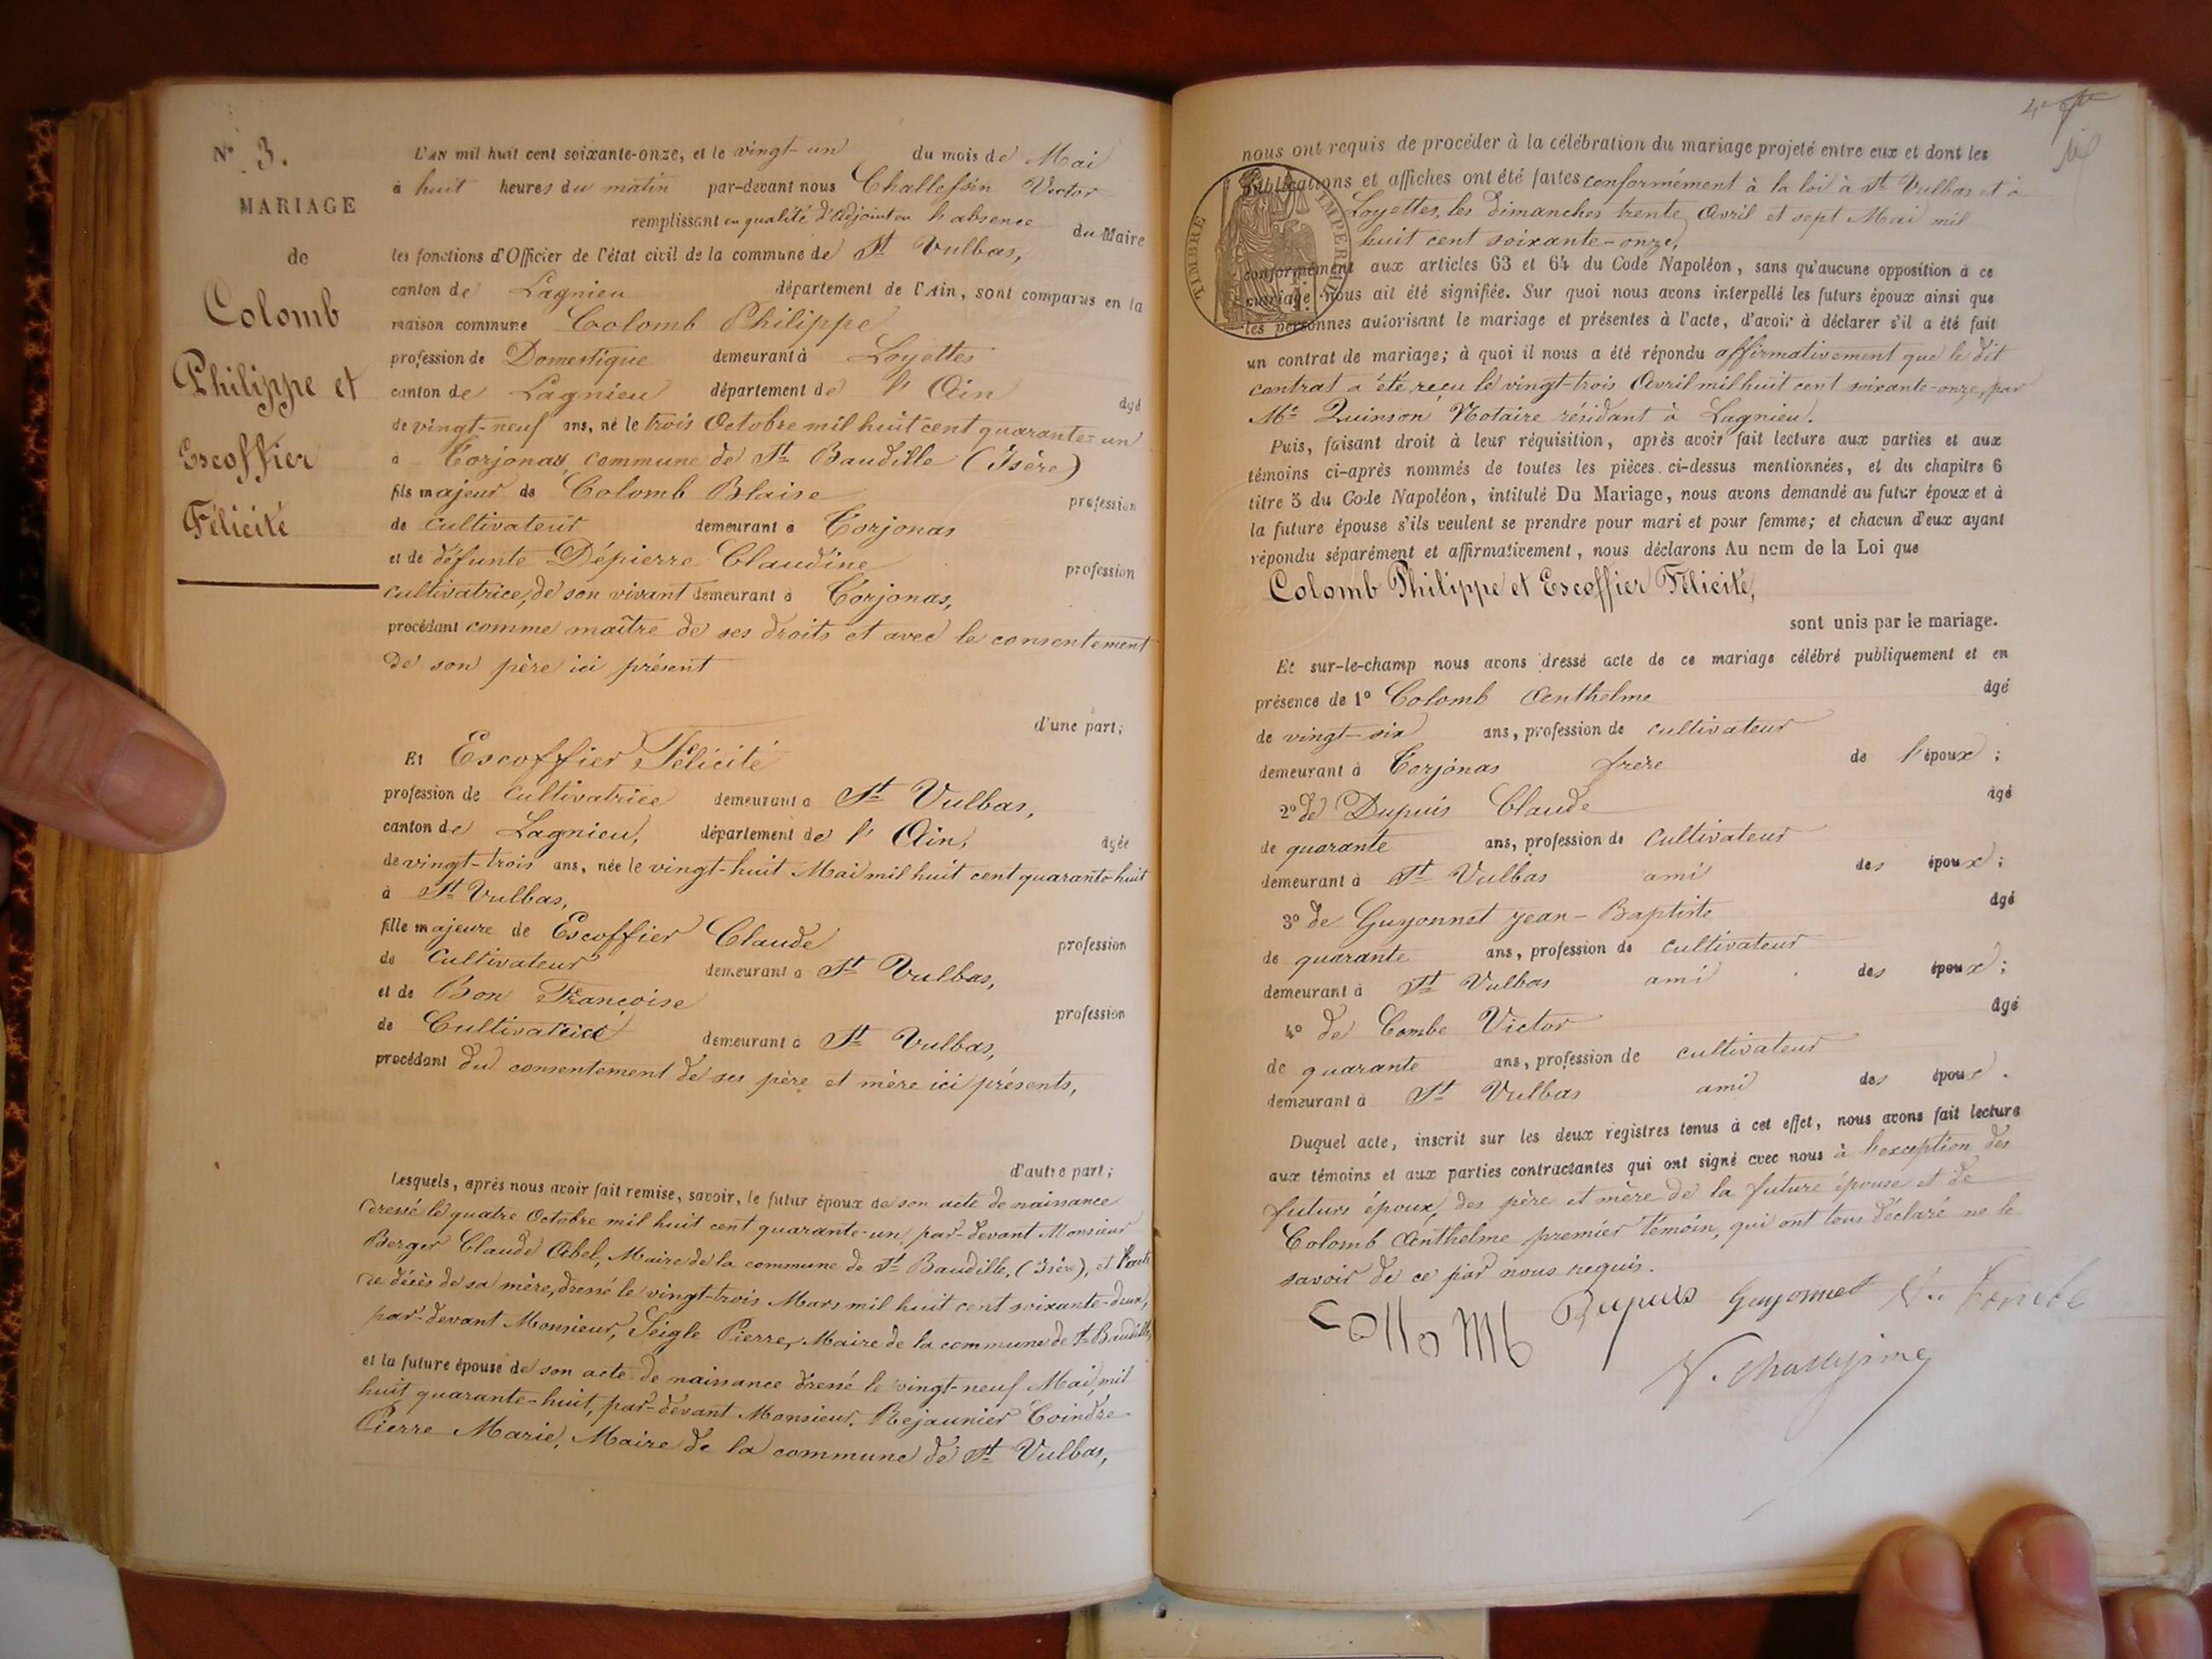 N° 3.
MARIAGE
de
Colomb
Philippe et
Escoffier
Félicité
L'AN mil huit cent soixante-onze, et le vingt-un du mois de Mai
à huit heures du matin par-devant nous Victor
remplissant en qualité d'Adjoint en l'absence du Maire
les fonctions d'Officier de l'état civil de la commune de St Vulbas,
canton de Lagnieu département de l'Ain, sont comparus en la
maison commune Colomb Philippe
profession de Domestique demeurant à Loyettes
canton de Lagnieu département de l'Ain âgé
de vingt-neuf ans, né le trois Octobre mil huit cent quarante-un
à Torjonas, commune de St Baudille (Isère)
fils majeur de Colomb Blaise profession
de cultivateur demeurant à Torjonas
et de défunte Dépierre Claudine profession
cultivatrice, de son vivant demeurant à Torjonas,
procédant comme maître de ses droits et avec le consentement
de son père ici présent
d'une part;
Et Escoffier Félicité
profession de Cultivatrice demeurant à St Vulbas,
canton de Lagnieu, département de l'Ain, âgée
de vingt-trois ans, née le vingt-huit Mai mil huit cent quarante-huit
à St Vulbas,
fille majeure de Escoffier Claude profession
de Cultivateur demeurant à St Vulbas,
et de Bon Françoise profession
de Cultivatrice demeurant à St Vulbas,
procédant du consentement de ses père et mère ici présents,
d'autre part;
Lesquels, après nous avoir fait remise, savoir, le futur époux de son acte de naissance
dressé le quatre Octobre mil huit cent quarante-un, par-devant Monsieur
Berger Claude Abel, Maire de la commune de St Baudille, (Isère), et l'acte
de décès de sa mère, dressé le vingt-trois Mars mil huit cent soixante-deux,
par-devant Monsieur, Seigle Pierre, Maire de la commune de St Baudille,
et la future épouse de son acte de naissance dressé le vingt-neuf Mai, mil
huit quarante-huit, par-devant Monsieur, Rejaunier Coindre
Pierre Marie, Maire de la commune de St Vulbas,
nous ont requis de procéder à la célébration du mariage projeté entre eux et dont les
publications et affiches ont été faites conformément à la loi à St Vulbas et à
Loyettes, les Dimanches trente Avril et sept Mai mil
huit cent soixante-onze,
TIMBRE IMPERIAL
conformément aux articles 63 et 64 du Code Napoléon, sans qu'aucune opposition à ce
mariage nous ait été signifiée. Sur quoi nous avons interpellé les futurs époux ainsi que
les personnes autorisant le mariage et présentes à l'acte, d'avoir à déclarer s'il a été fait
un contrat de mariage; à quoi il nous a été répondu affirmativement que le dit
contrat a été reçu le vingt-trois Avril mil huit cent soixante-onze, par
Me Quinson Notaire résidant à Lagnieu.
Puis, faisant droit à leur réquisition, après avoir fait lecture aux parties et aux
témoins ci-après nommés de toutes les pièces ci-dessus mentionnées, et du chapitre 6
titre 5 du Code Napoléon, intitulé Du Mariage, nous avons demandé au futur époux et à
la future épouse s'ils veulent se prendre pour mari et pour femme; et chacun d'eux ayant
répondu séparément et affirmativement, nous déclarons Au nom de la Loi que
Colomb Philippe et Escoffier Félicité,
sont unis par le mariage.
Et sur-le-champ nous avons dressé acte de ce mariage célébré publiquement et en
présence de 1° Colomb Anthelme âgé
de vingt-six ans, profession de cultivateur
demeurant à Torjonas frère de l'époux;
2° de Dupuis Claude âgé
de quarante ans, profession de cultivateur
demeurant à St Vulbas ami des époux;
3° de Guyonnet Jean-Baptiste âgé
de quarante ans, profession de cultivateur
demeurant à St Vulbas ami des époux;
4° de Combe Victor âgé
de quarante ans, profession de cultivateur
demeurant à St Vulbas ami des époux.
Duquel acte, inscrit sur les deux registres tenus à cet effet, nous avons fait lecture
aux témoins et aux parties contractantes qui ont signé avec nous à l'exception des
futurs époux, des père et mère de la future épouse et de
Colomb Anthelme premier témoin, qui ont tous déclaré ne le
savoir de ce par nous requis.
Collomb Dupuis Guyonnet